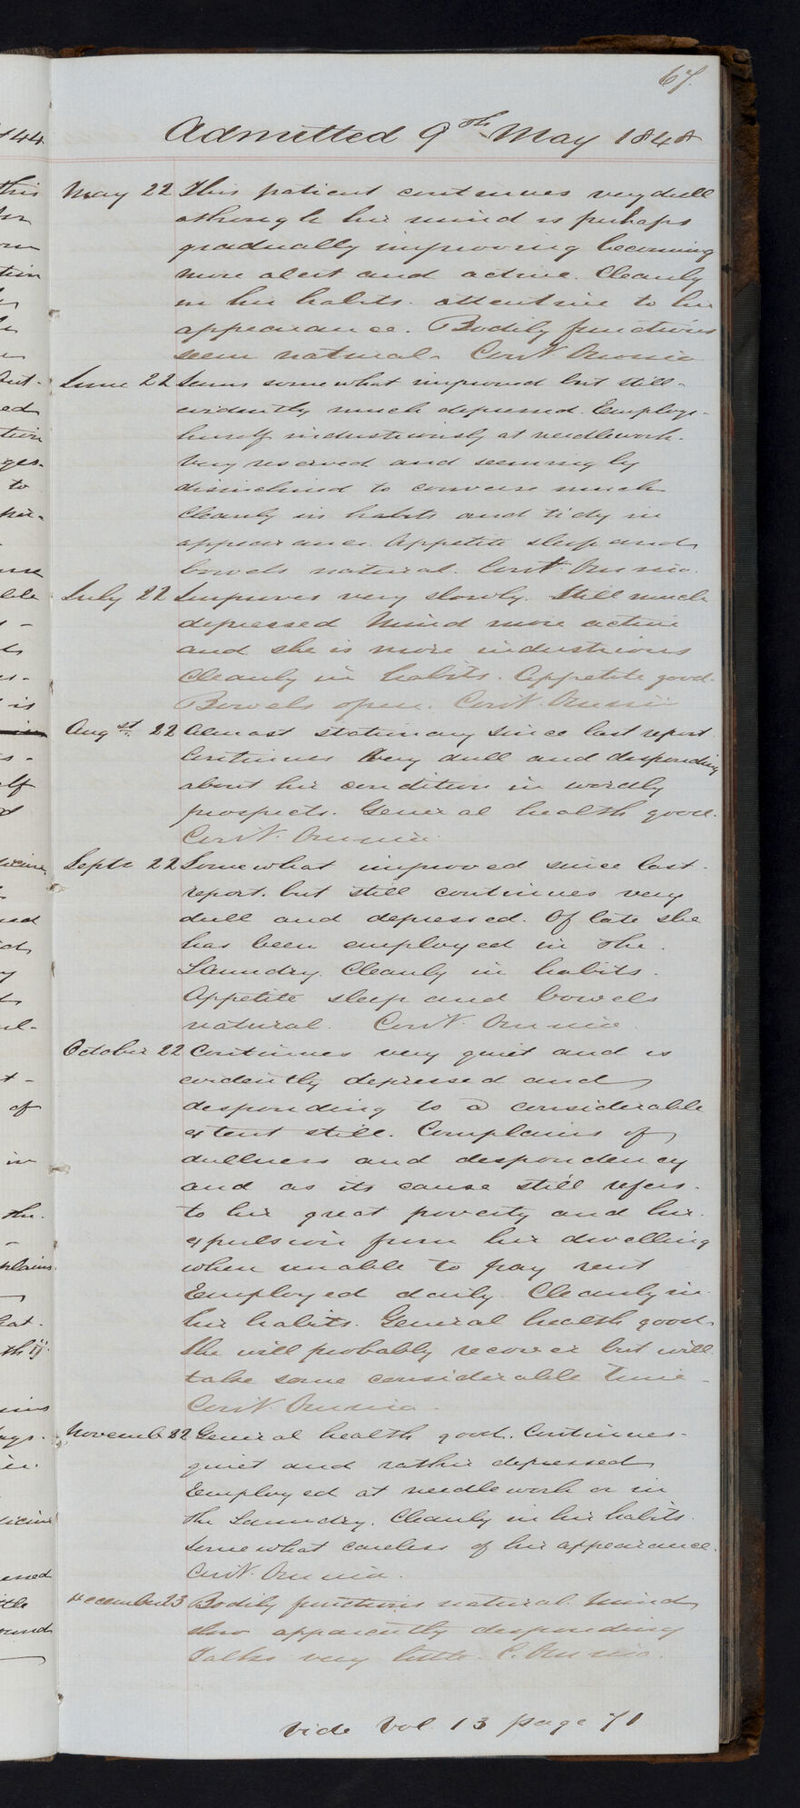 67.
Admitted 9th May 1848
May 22 This patient continues very dull
although her mind is perhaps
gradually improving becoming
more alert and active. Cleanly
in her habits. attentive to her
appearance. Bodily functions
seem natural. Cont. Omnia
June 22 Seems somewhat improved but still
evidently much depressed. Employs
herself industriously at needlework.
Very reserved and seemingly
disinclined to converse much
Cleanly in habits and tidy in
appearance. Appetite sleep and
bowels natural. Cont. Omnia.
July 22 Improves very slowly. Still much
depressed Mind more active
and she is more industrious
Cleanly in habits. Appetite good.
Bowels open. Cont. Omnia
Augst. 22 Almost stationary since last report
Continues very dull and desponding
about her condition in wordly
prospects. General health good.
Cont. Omnia.
Septr 22 Somewhat improved since last
report. but still continues very
dull and depressed. Of late she
has been employed in the
Laundry. Cleanly in habits.
Appetite sleep and bowels
natural. Cont. Omnia
October 22 Continues very quiet and is
evidently depressed and
desponding to a considerable
extent still. Complains of
dullness and despondency
and as its cause still refers
to her great poverty and her
expulsion from her dwelling
when unable to pay rent
Employed daily. Cleanly in
her habits. General health good.
She will probably recover but will
take some considerable time
Cont. Omnia.
Novemb 22 General health good. Continues
quiet and rather depressed
Employed at needlework or in
the Laundry. Cleanly in her habits
Somewhat careless of her appearance.
Cont. Omnia.
December 23 Bodily functions natural. Mind
slow apparently desponding
Talks very little. C. Omnia.
Vide Vol 13 page 71